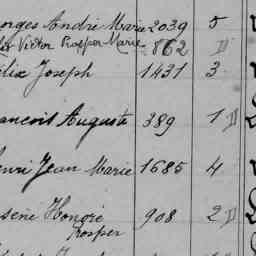 orges André Marie 2039 5
Victor Prosper Marie 862 D
lix Joseph 1431 3
ancois Auguste 389 1 D
enri Jean Marie 1685 4
sène Honoré 908 2 D
Prosper